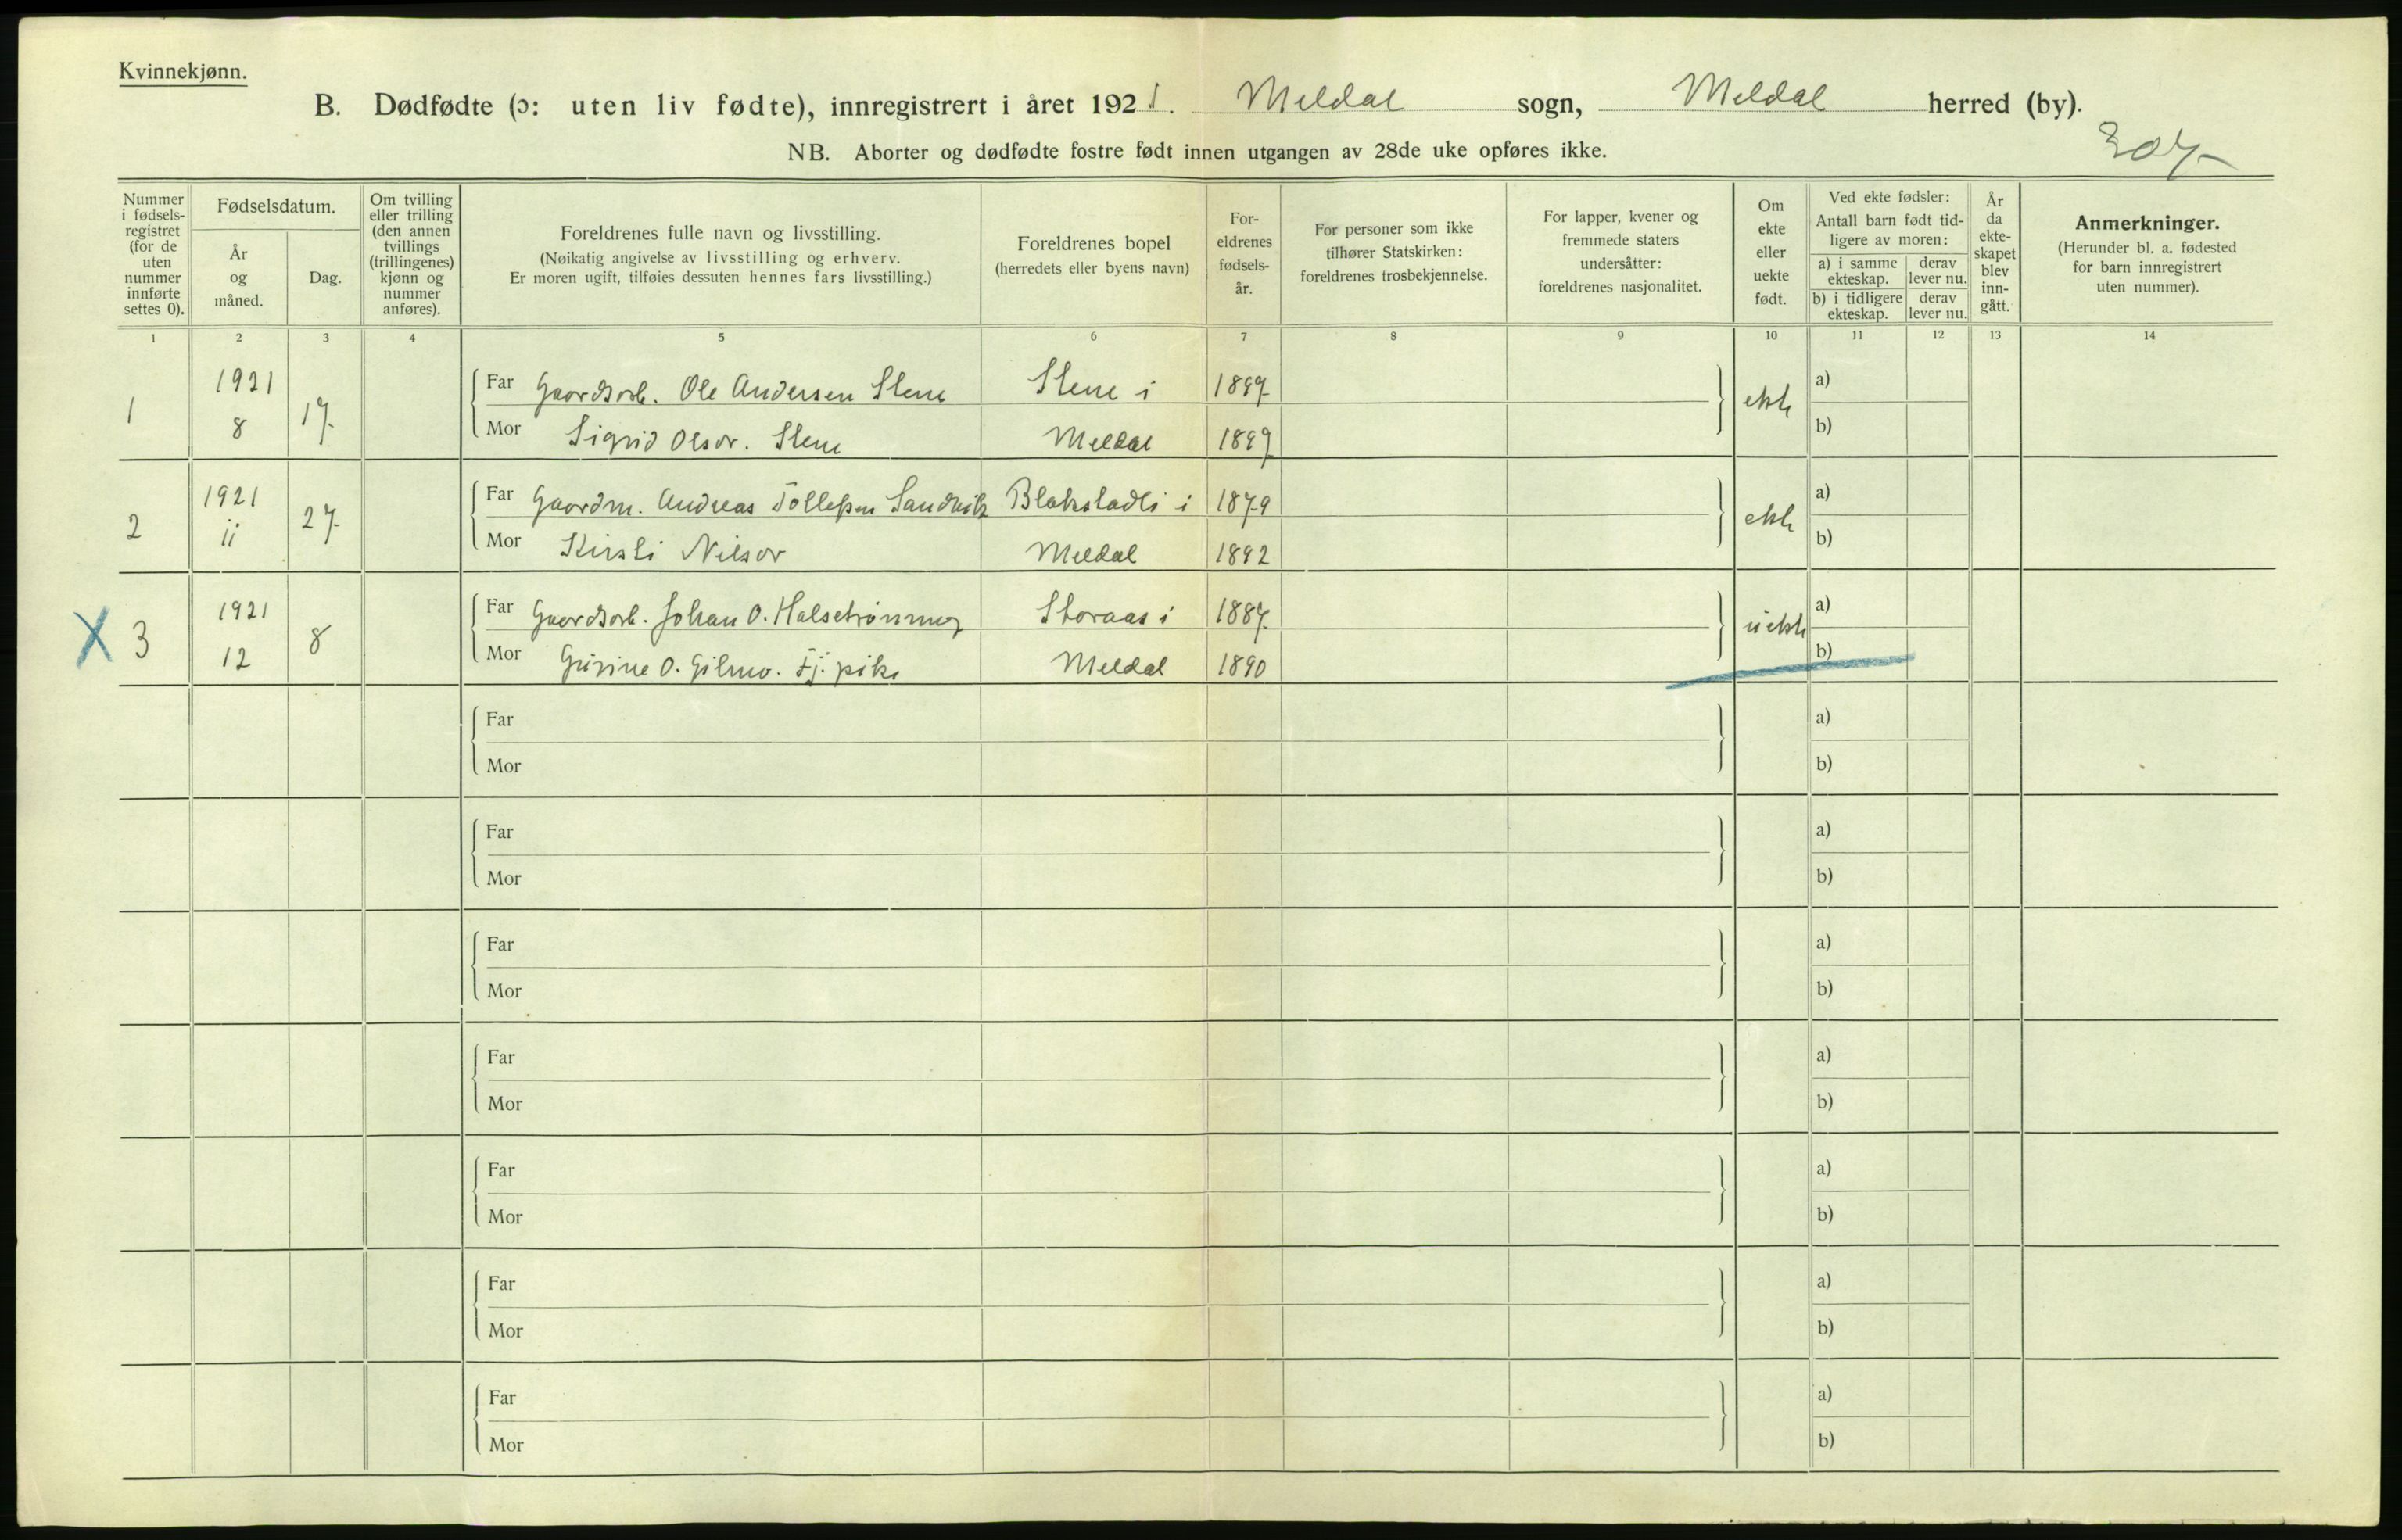 Kvinnekjønn.
B. Dødfødte (ɔ: uten liv fødte), innregistrert i året 1921. Meldal sogn, Meldal herred (by).
NB. Aborter og dødfødte fostre født innen utgangen av 28de uke opføres ikke.
307-
Nummer i fødsels-registret (for de uten nummer innførte settes 0).
Fødselsdatum.
År og måned.
Dag.
Om tvilling eller trilling (den annen tvillings (trillingenes) kjønn og nummer anføres).
Foreldrenes fulle navn og livsstilling.
(Nøikatig angivelse av livsstilling og erhverv.
Er moren ugift, tilføies dessuten hennes fars livsstilling.)
Foreldrenes bopel
(herredets eller byens navn)
For-eldrenes fødsels-år.
For personer som ikke tilhører Statskirken: foreldrenes trosbekjennelse.
For lapper, kvener og fremmede staters undersåtter: foreldrenes nasjonalitet.
Om ekte eller uekte født.
Ved ekte fødsler:
Antall barn født tid-ligere av moren:
a) i samme ekteskap.
derav lever nu.
b) i tidligere ekteskap.
derav lever nu.
År da ekte-skapet blev inn-gått.
Anmerkninger.
(Herunder bl. a. fødested for barn innregistrert uten nummer).
1 2 3 4 5 6 7 8 9 10 11 12 13 14
1 1921 8 17 Far Gaardsarb. Ole Andersen Stene Stene i 1897 ekte a)
Mor Sigrid Olsdr. Stene Meldal 1899 b)
2 1921 11 27 Far Gaardm. Andreas Tollefsen Sandvik Blokstadli i 1879 ekte a)
Mor Kirsti Nilsdr Meldal 1892 b)
X 3 1921 12 8 Far Gaardsarb. Johan O. Halsetrønning Storaas i 1887 uekte a)
Mor Gurine O. Gilmo. Tj. pike Meldal 1890 b)
Far a)
Mor b)
Far a)
Mor b)
Far a)
Mor b)
Far a)
Mor b)
Far a)
Mor b)
Far a)
Mor b)
Far a)
Mor b)